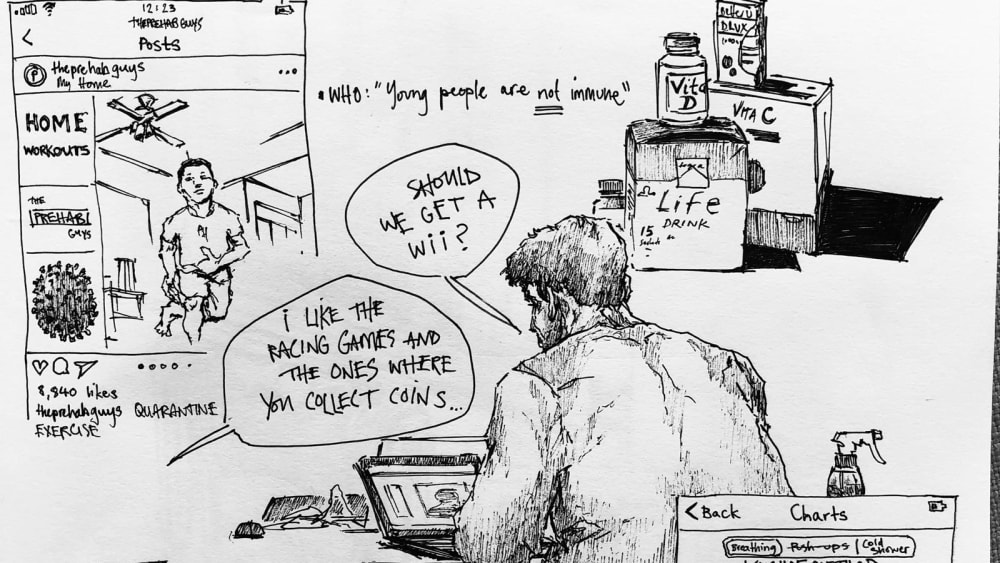 12:23
THEPREHAB GUYS
Posts
theprehabguys
My Home
HOME
WORKOUTS
THE
PREHAB
GUYS
8,840 likes
theprehabguys QUARANTINE
EXERCISE
• WHO: "Young people are not immune"
SHOULD
WE GET A
Wii?
i LIKE THE
RACING GAMES AND
THE ONES WHERE
YOU COLLECT COINS...
Vita
D
VITA C
Life
DRINK
15
Back
Charts
Breathing
Push-ups
Cold
shower